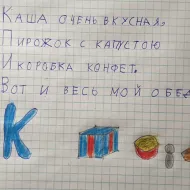 Каша очень вкусная,
Пирожок с капустою
И коробка конфет.
Вот и весь мой обе
К